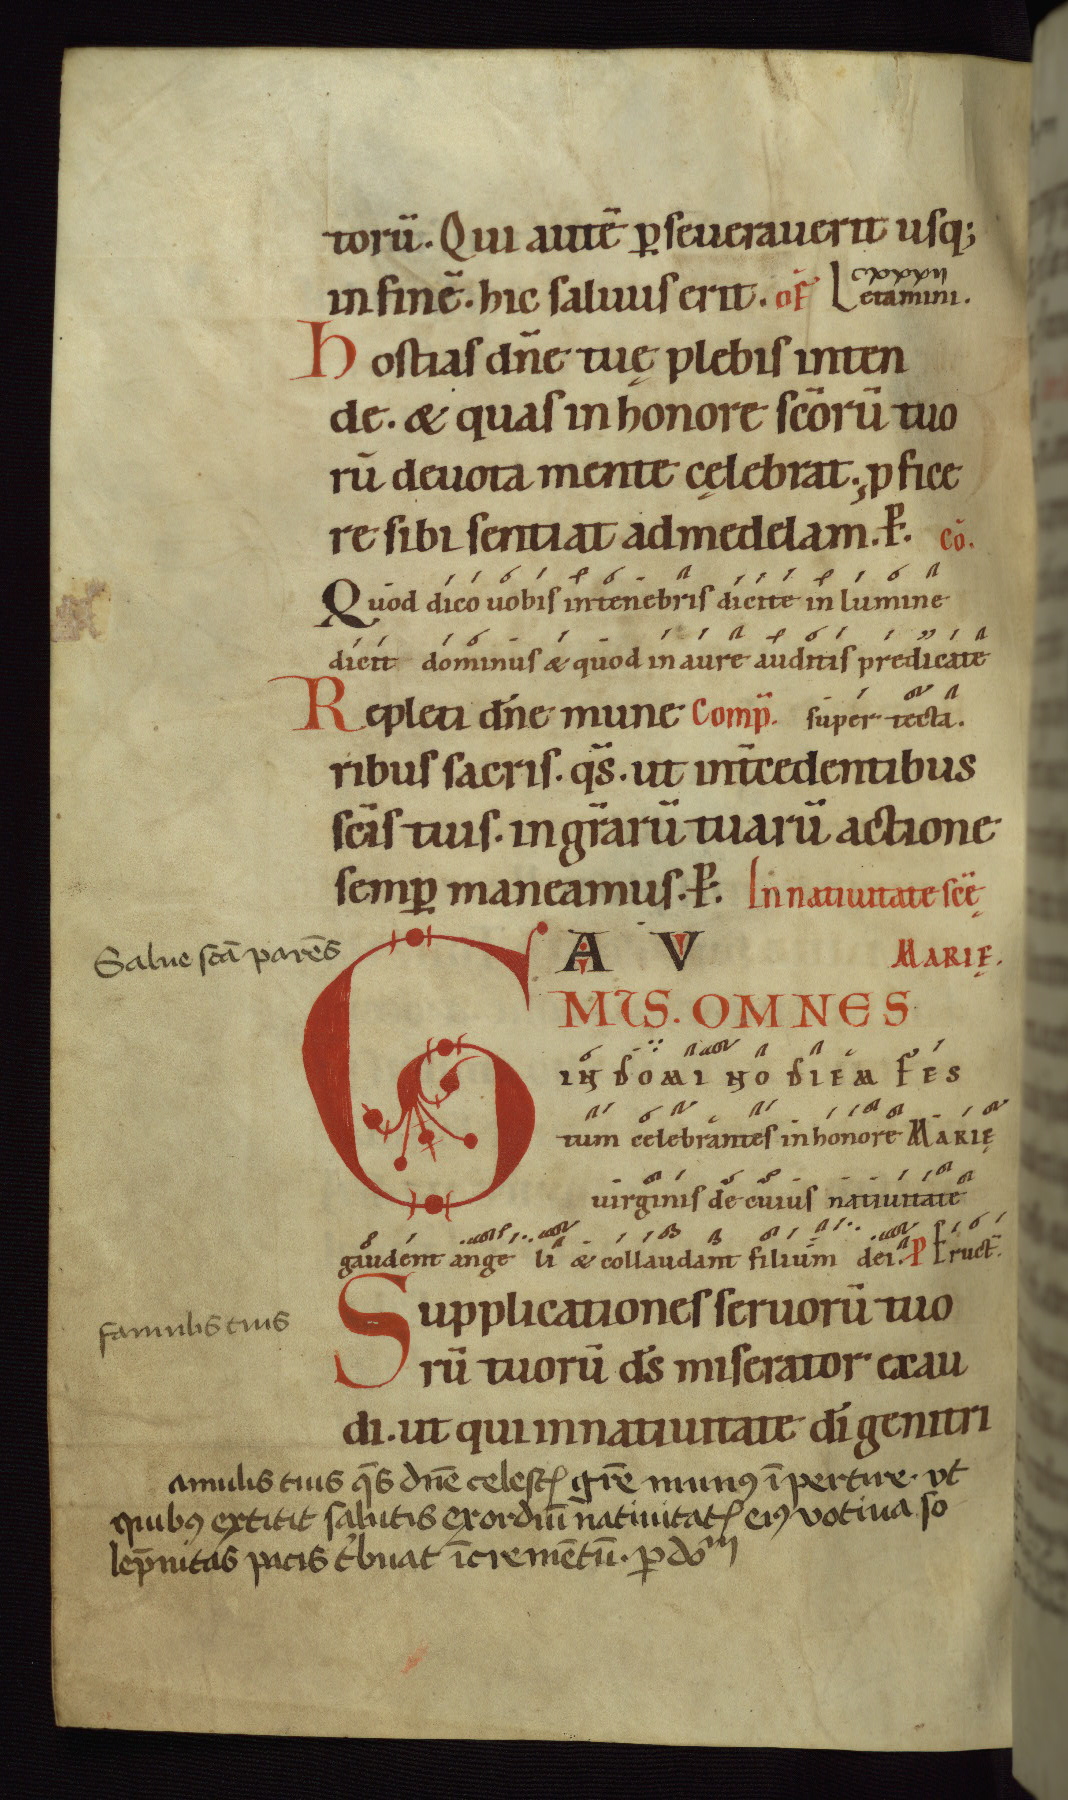 torū. Qui autē ꝑseuerauerit usq;
in finē. hic saluus erit. of̄ Letamini. cxxxxii
Hostias dn̄e tuę plebis inten
de. & quas in honore sc̄orū tuo
rū deuota mente cęlebrat. ꝓfice
re sibi sentiat ad medelam. P̱. Cō.
Quod dico uobis in tenebris dicite in lumine
dicit dominus & quod in aure auditis predicate
Repleti dn̄e mune Comp̄. super tecta.
ribus sacris. qs̄. ut int̄cedentibus
sc̄is tuis. in gr̄arū tuarū actione
semꝑ maneamus. P̱. In natiuitate scę̄
Salue sc̄a parēs GAV MARIĘ.
MUS. OMNES
IN DOMINO DIEM FES
tum celebrantes in honore MARIĘ
uirginis de cuius natiuitate
gaudent angeli & collaudant filium dei. P Eruct̄.
Supplicationes seruorū tuo
famulis tuis
rū tuorū ds̄ miserator exau
di. ut qui in natiuitate dī genitri
amulis tuis qs̄ dn̄e celestꝭ gr̄e munꝰ īpertire. vt
quibꝰ extitit salutis exordiū natiuitatꝭ eiꝰ votiua so
lep̄nitas pacis t'buat īcremētū. ꝑ dom̄